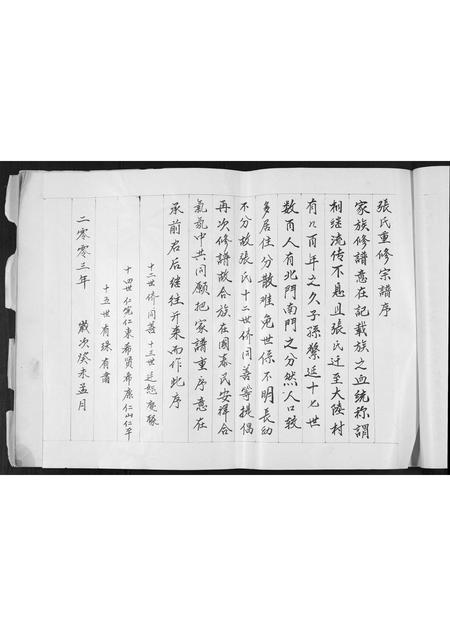 張氏重修宗譜序
家族修譜意在記載族之血統称謂
相継流传不息且張氏迁至大陸村
有六百年之久子孫繁延十七世
数百人有北門南門之分然人口較
多居住分散难免世係不明長幼
不分故張氏十二世侪同善等提倡
再次修譜故合族在國泰民安祥合
氣氛中共同願把家譜重序意在
承前启后继往开来而作此序
十二世侪同善 十三世廷起慶聚
十四世仁憲仁東希賢希康仁山仁平
十五世有珠有肅
二零零三年 歲次癸未孟月